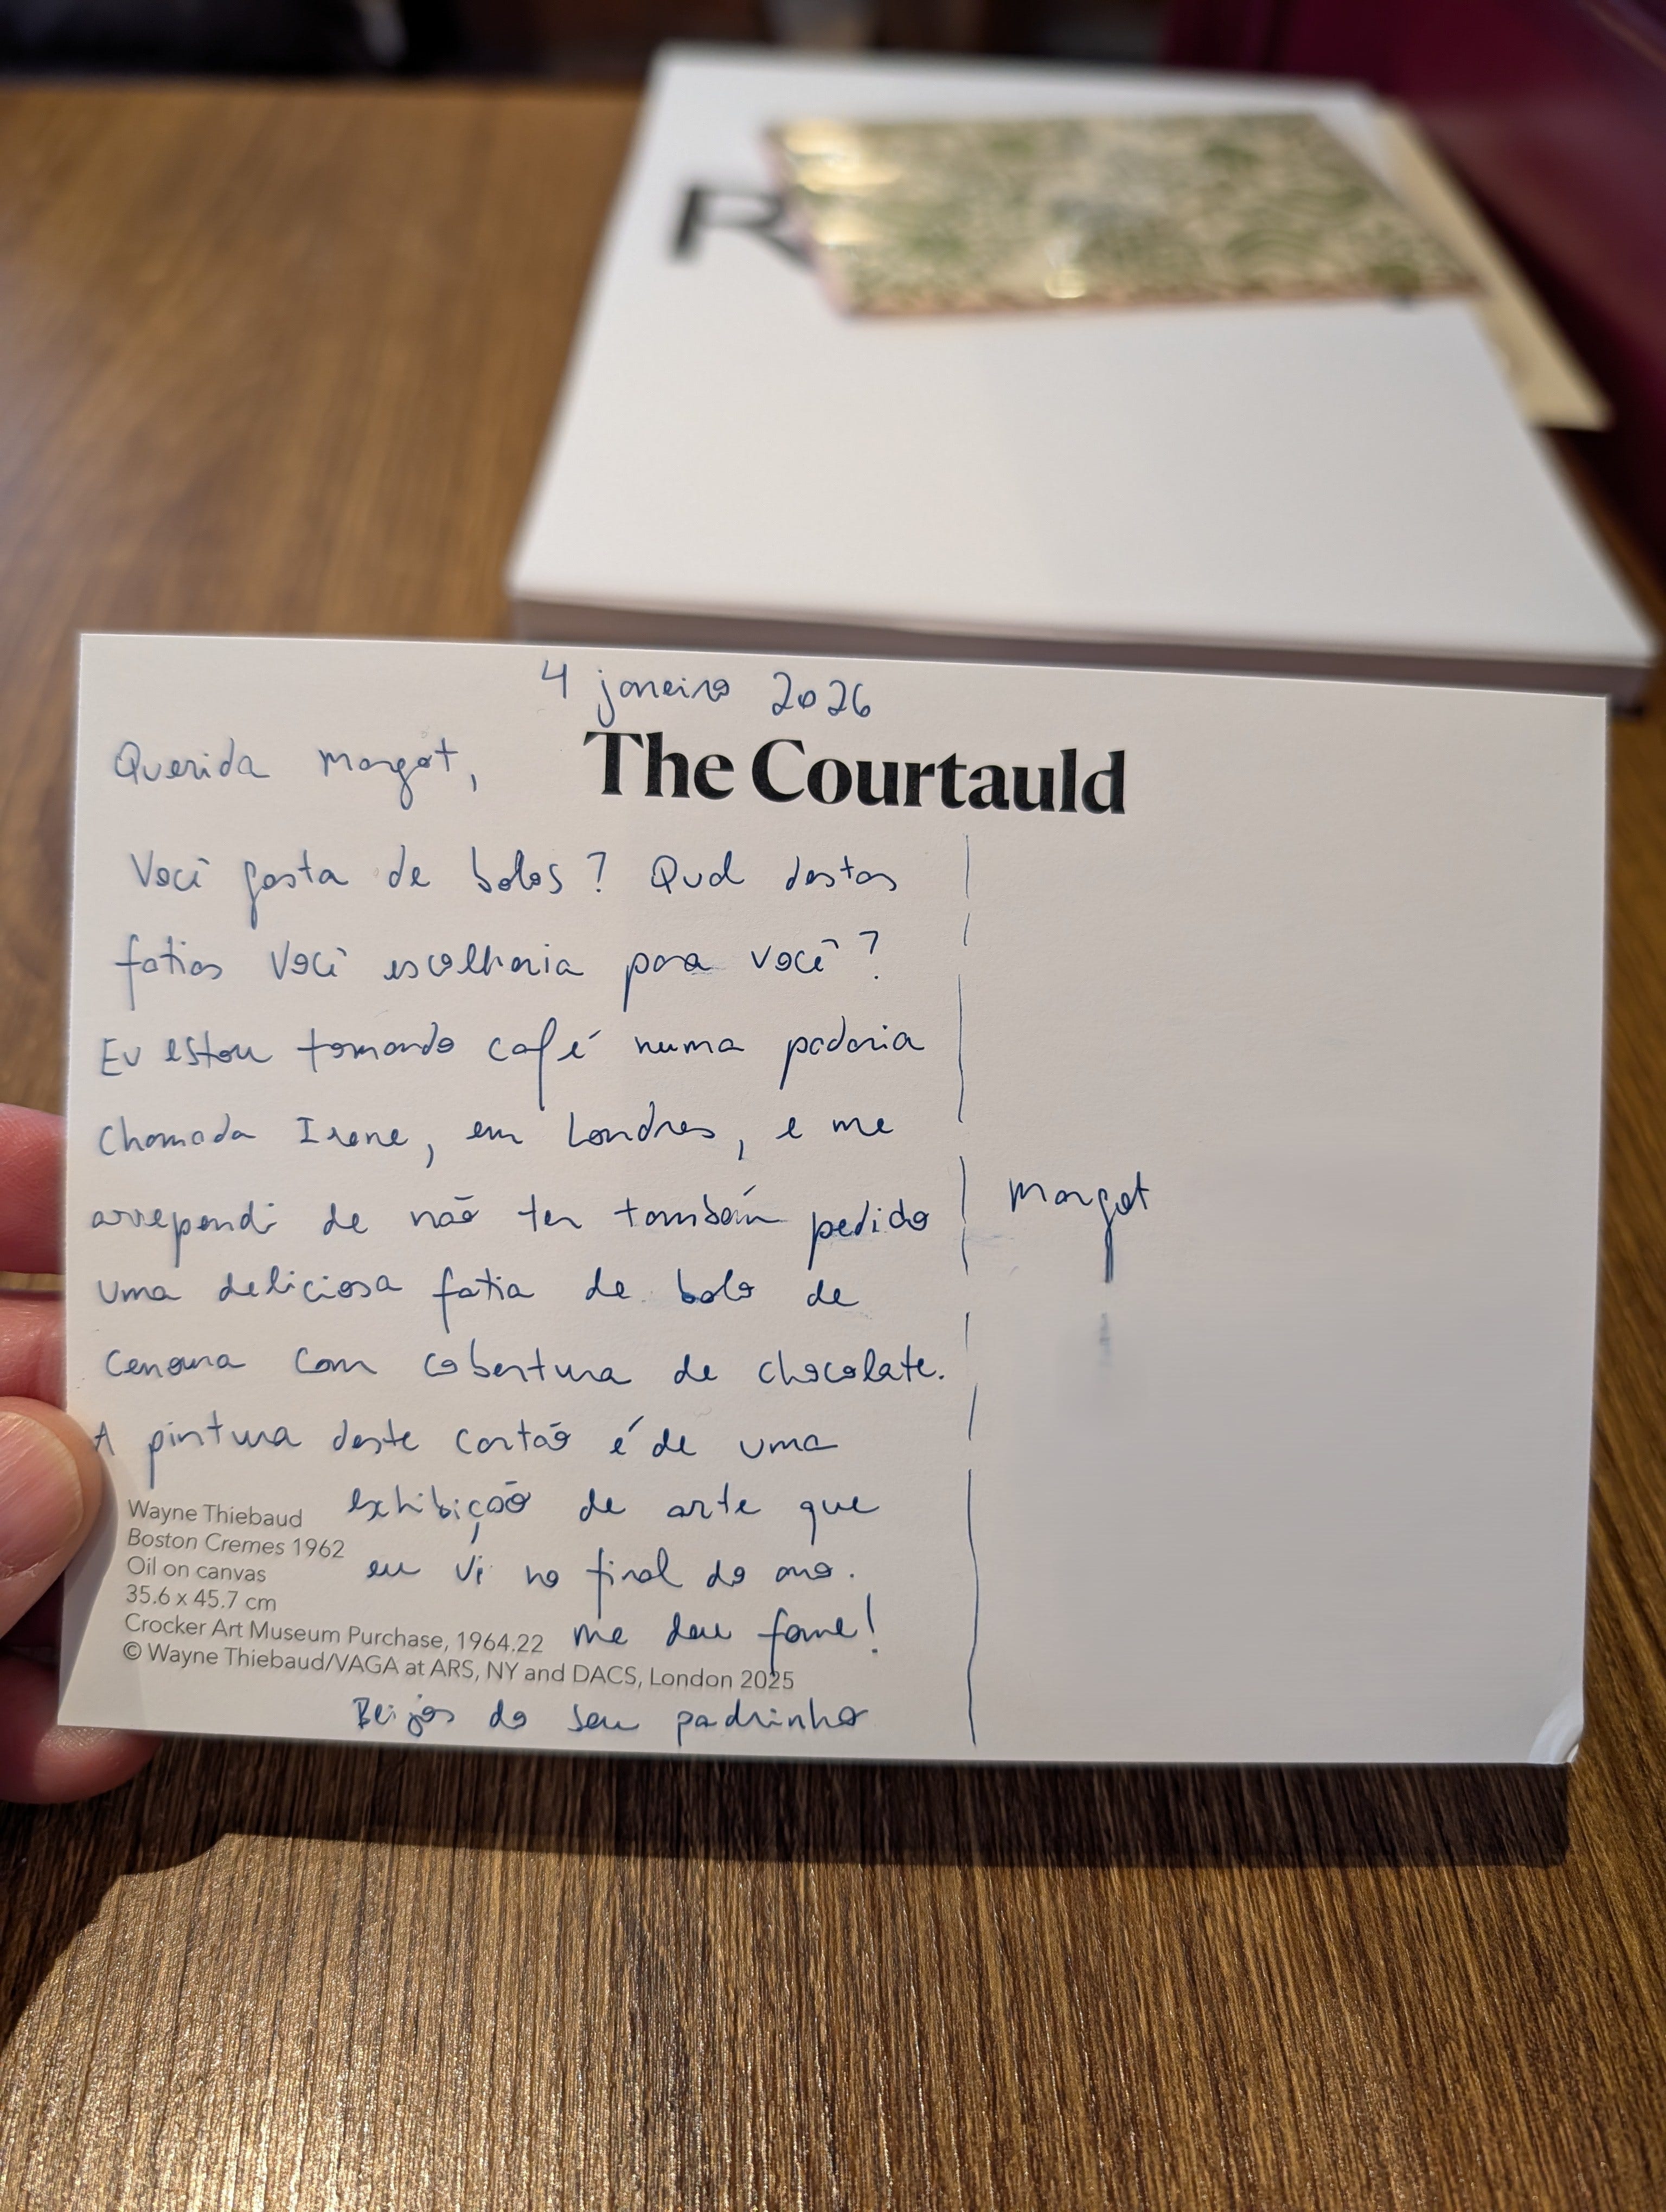 R
4 janeiro 2026
The Courtauld
Querida Margot,
Você gosta de bolos? Qual destas
fatias você escolheria para você?
Eu estou tomando café numa padaria
chamada Irene, em Londres, e me
arrependi de não ter também pedido
uma deliciosa fatia de bolo de
cenoura com cobertura de chocolate.
A pintura deste cartão é de uma
exhibição de arte que
eu vi no final do ano.
Me deu fome!
Beijos do seu padrinho
Wayne Thiebaud
Boston Cremes 1962
Oil on canvas
35.6 x 45.7 cm
Crocker Art Museum Purchase, 1964.22
© Wayne Thiebaud/VAGA at ARS, NY and DACS, London 2025
Margot